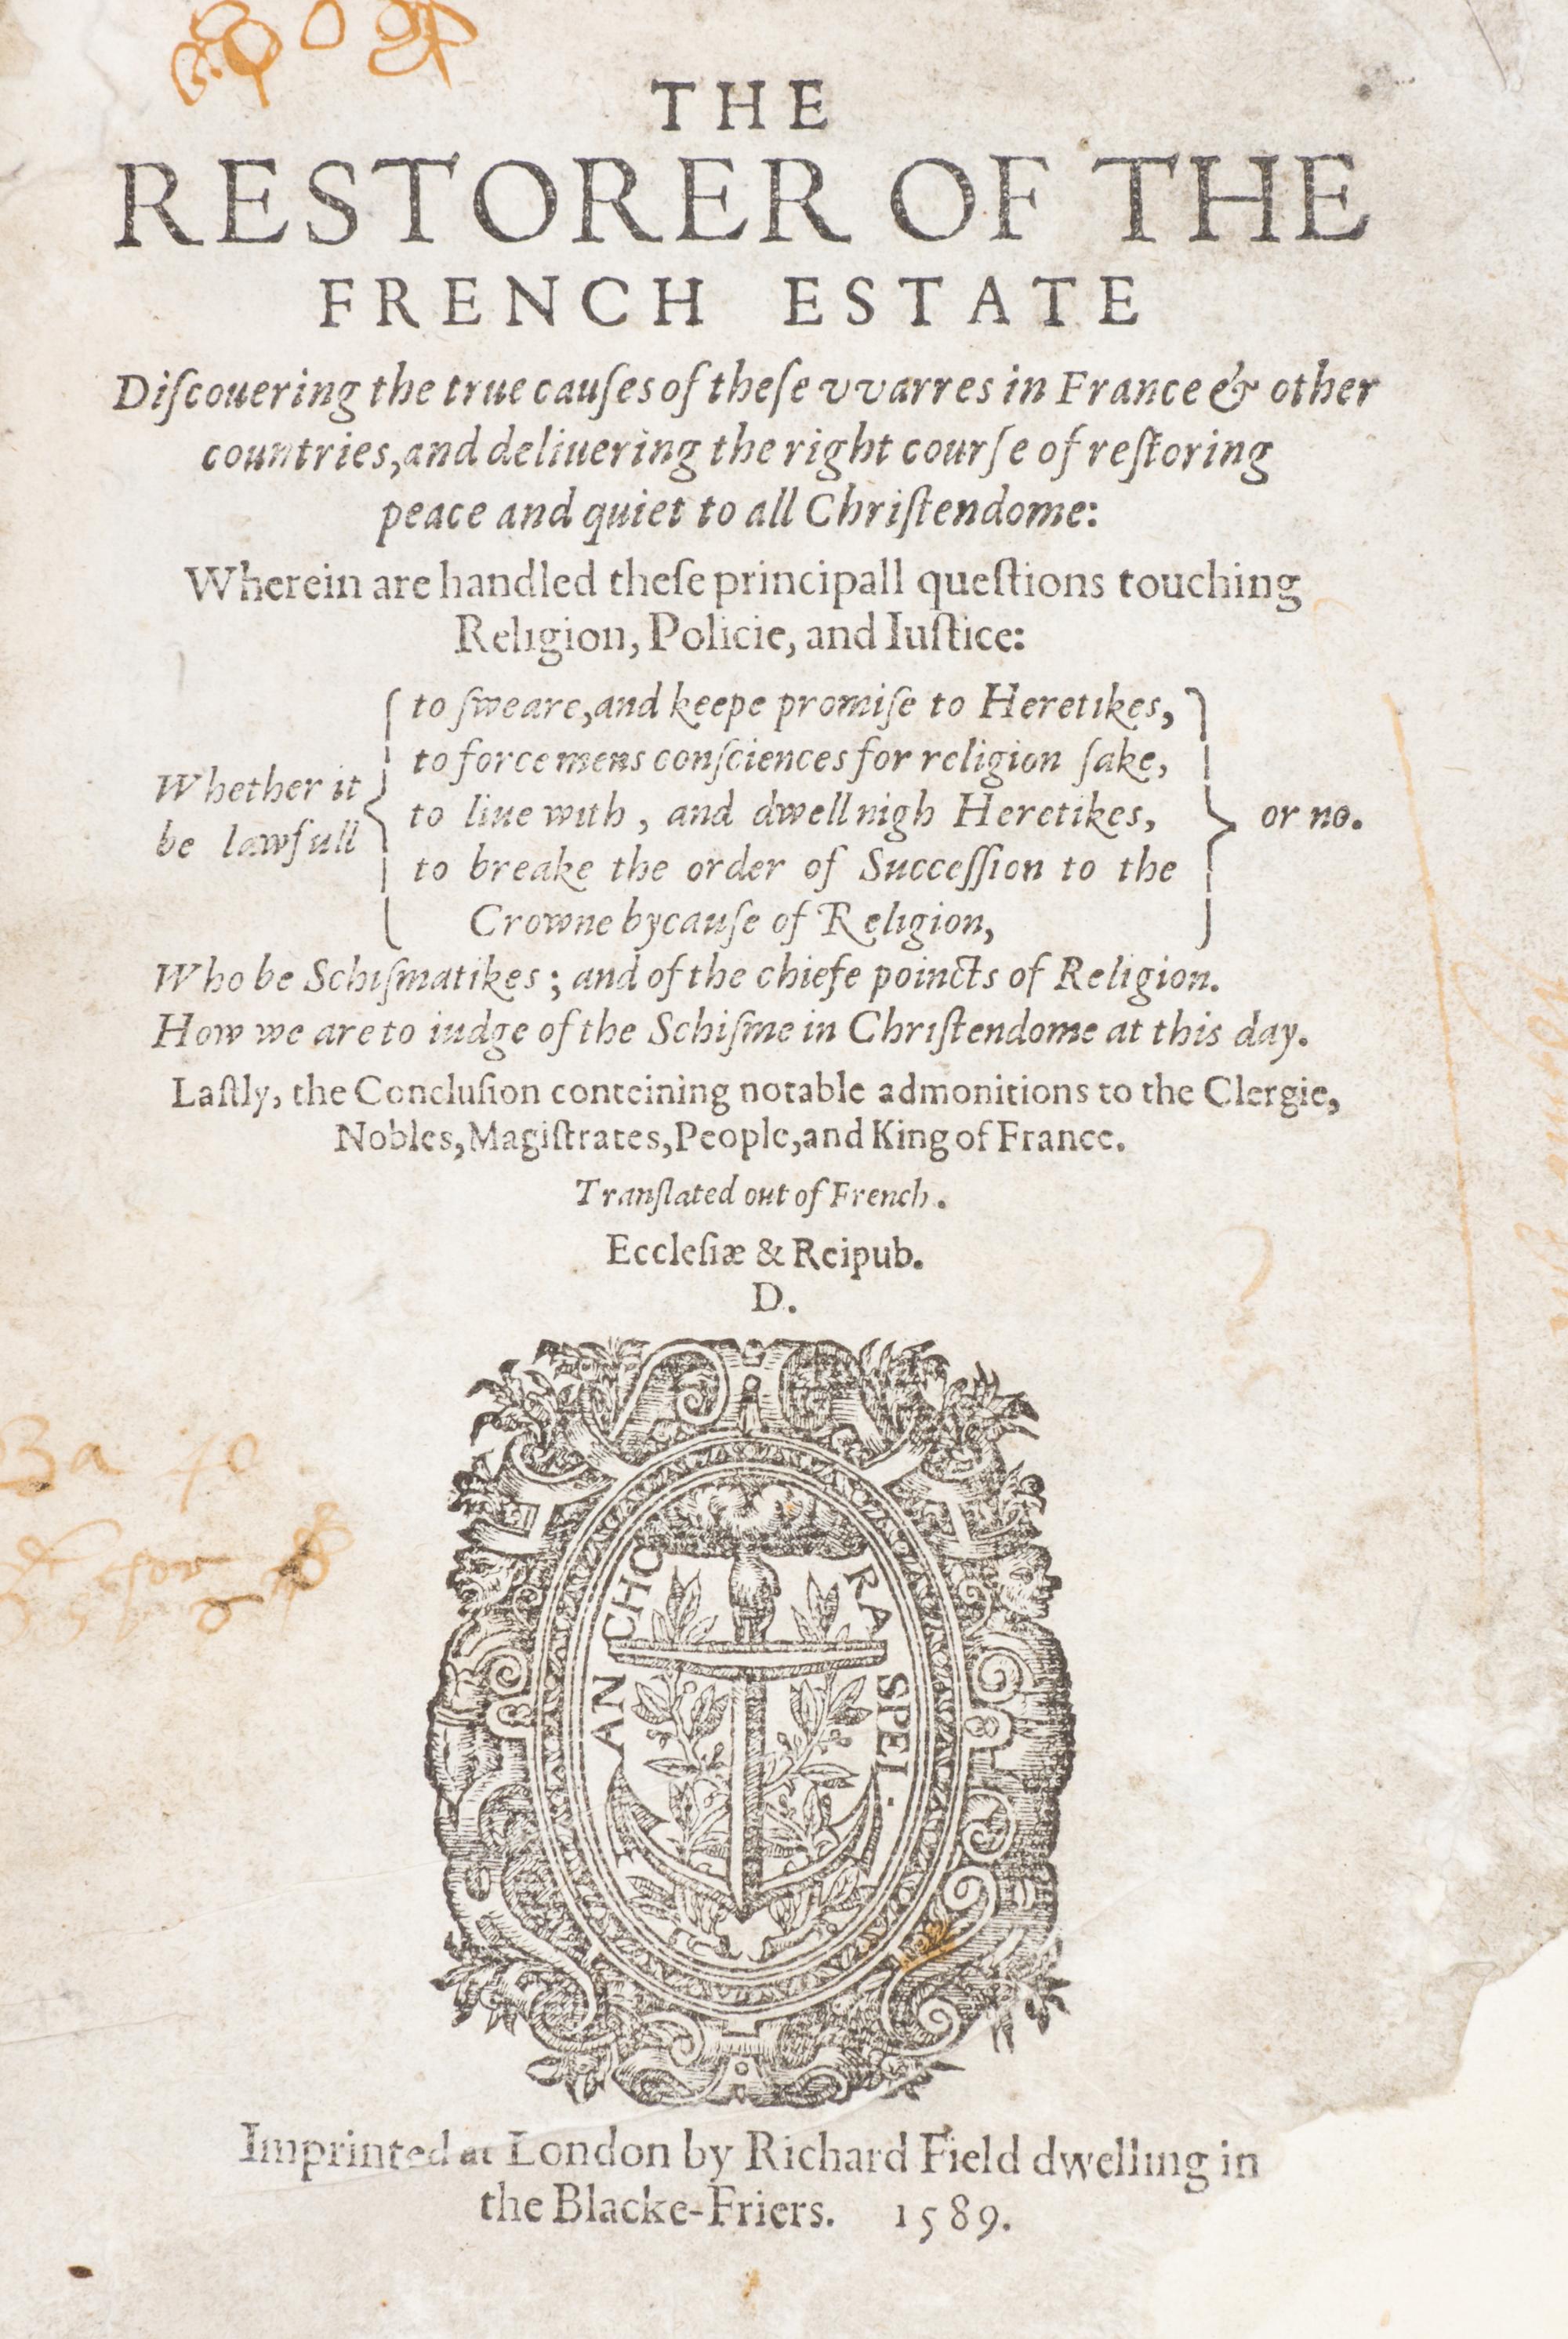 THE
RESTORER OF THE
FRENCH ESTATE
Diſcouering the true cauſes of theſe vvarres in France & other
countries, and deliuering the right courſe of reſtoring
peace and quiet to all Chriſtendome:
Wherein are handled theſe principall queſtions touching
Religion, Policie, and Iuſtice:
Whether it
be lawfull
to ſweare, and keepe promiſe to Heretikes,
to force mens conſciences for religion ſake,
to liue with, and dwell nigh Heretikes,
to breake the order of Succeſſion to the
Crowne bycauſe of Religion,
or no.
Who be Schiſmatikes; and of the chiefe poincts of Religion.
How we are to iudge of the Schiſme in Chriſtendome at this day.
Laſtly, the Concluſion conteining notable admonitions to the Clergie,
Nobles, Magiſtrates, People, and King of France.
Tranſlated out of French.
Eccleſiæ & Reipub.
D.
ANCHORA SPEI.
Imprinted at London by Richard Field dwelling in
the Blacke-Friers. 1589.